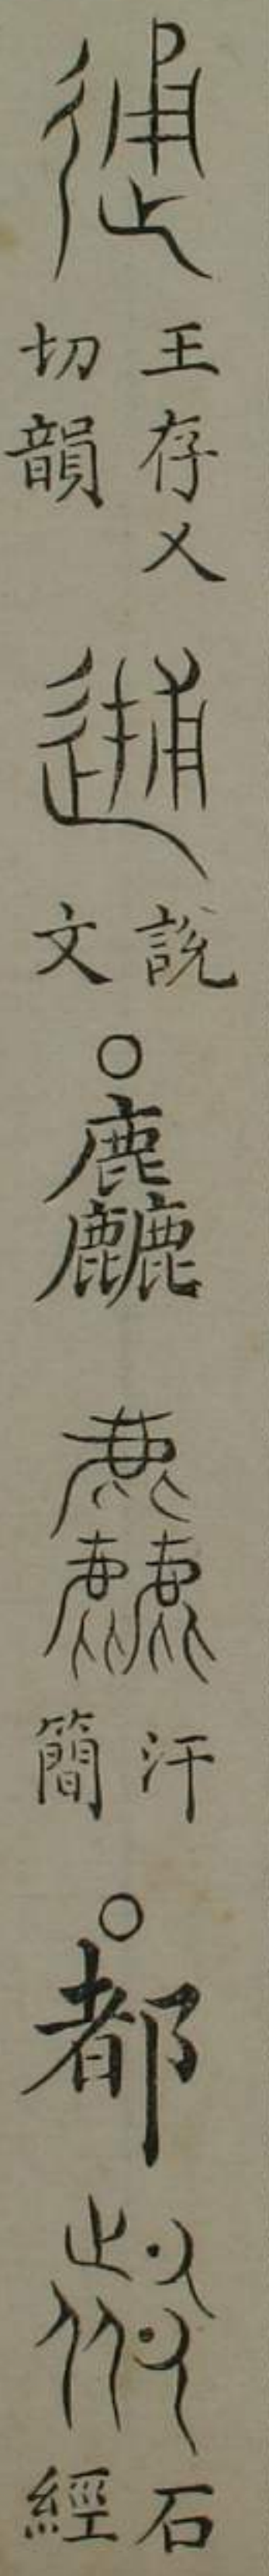 逋王存乂切韻說文○麤麤汗簡○都石經